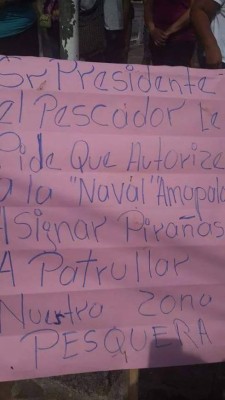 Sr Presidente
el Pescador Le
Pide Que Autorize
a la "Naval" Amapala
Asignar Pirañas
A Patrullar
Nuestra Zona
PESQUERA